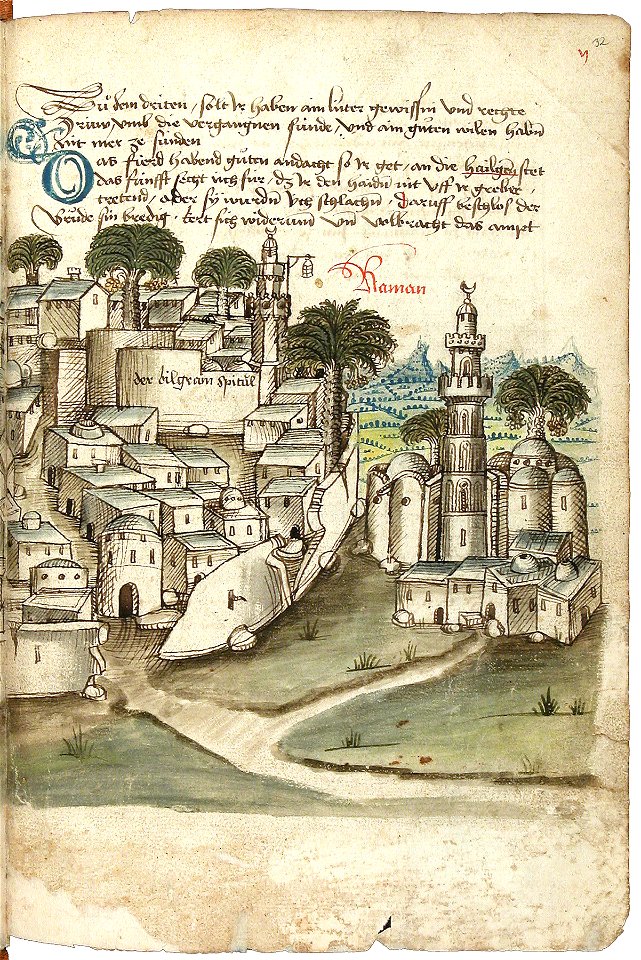 32
Zů dem driten, solt ir haben ain luter gewissen und rechte
Trüw umb die vergangnen sünde, und ain gůten wilen habn
Nut mer ze sünden
Das fierd habend gůten andacht so ir get, an die hailgen stet
das fünfft secht üch für, dz ir den haidn nit uff ir greber
tretend, oder sÿ wurdn üch schlachn, daruff beschlos der
brüde sin bredig, kert sich widerumb und volbracht das ampt
Raman
der bilgram spitûl